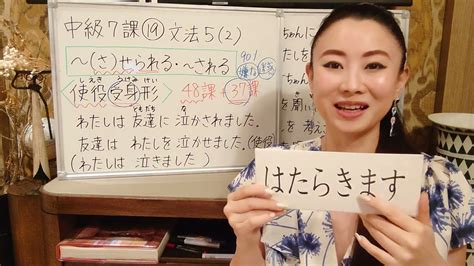 中級7課⑲文法5(2)
～(さ)せられる・～される
90%
嫌な
しえき うけみ けい
使役受身形
48課+37課
ともだち
わたしは友達に泣かされました。
友達はわたしを泣かせました。(使役)
(わたしは泣きました)
ちゃんに
はたらきます